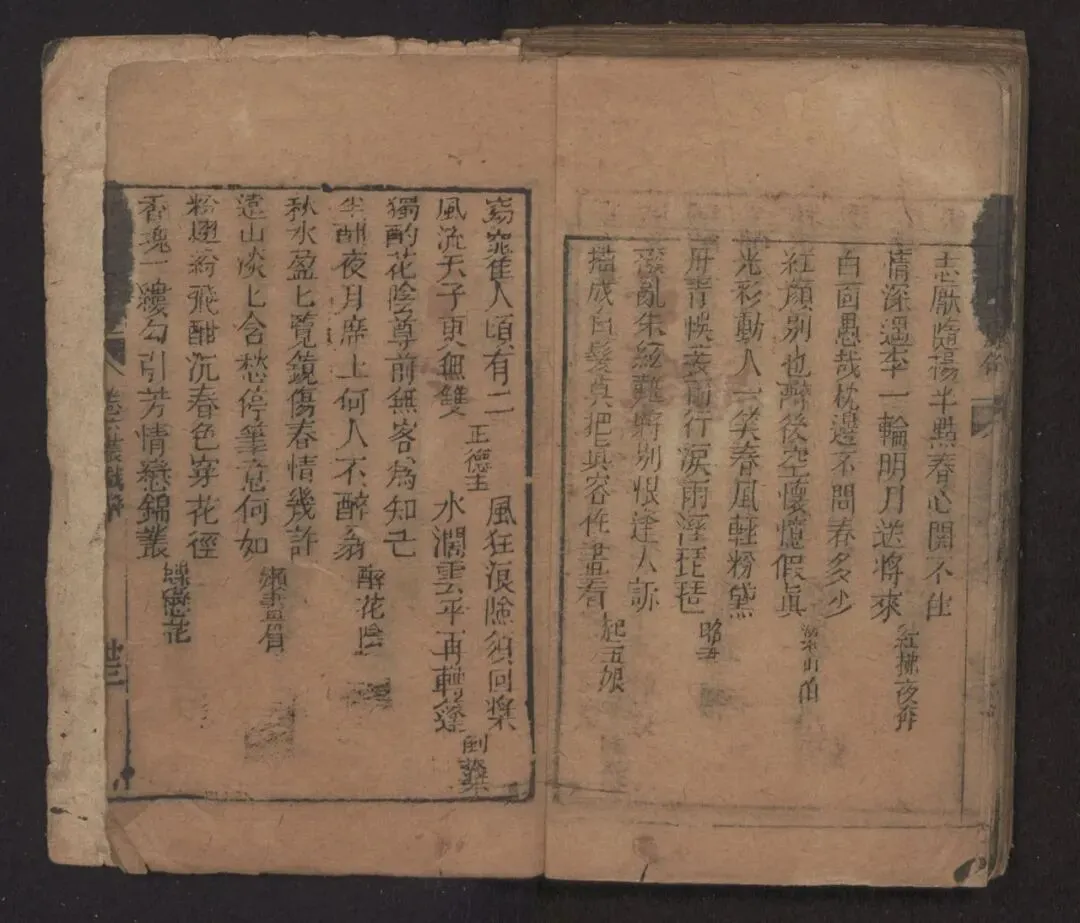 志厭隨楊半點春心関不住
情深遇李一輪明月送將來 紅拂夜奔
白面愚哉枕邊不問春多少
紅顔别也醉後空懷憶假真 梁山伯
光彩動人一笑春風輕粉黛
丹青悞妾南行淚雨溼琵琶 昭君
紊亂朱絲難將别恨逢人訴
描成白髮莫把真容作畫看 赵五娘
窈窕隹人頃有二
風流天子更無雙 正德主
風狂浪險須回槳
水濶雲平再轉篷 倒槳
獨酌花陰尊前無客為知己
酣夜月席上何人不醉翁 醉花陰
秋水盈匕覽鏡傷春情幾許
遠山淡匕含愁停筆意何如 懶畫眉
粉翅紛飛酣沉春色穿花徑
香魂一縷勾引芳情戀錦叢 蝶戀花
卄三